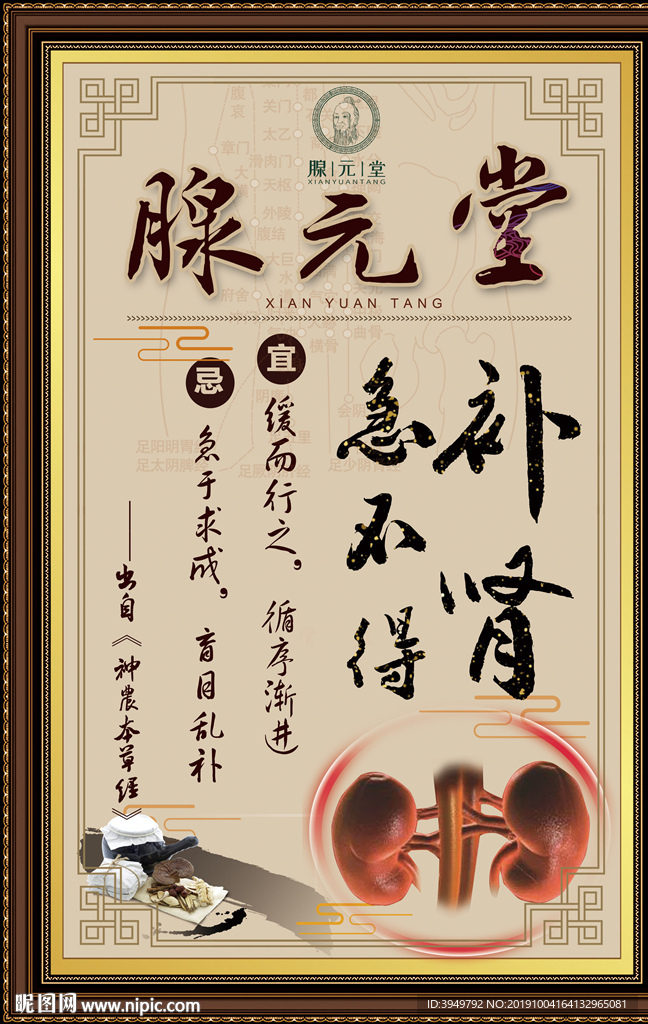 腺元堂
XIANYUANTANG
腺元堂
XIAN YUAN TANG
补肾
急不得
宜
缓而行之，循序渐进
忌
急于求成，盲目乱补
——出自《神农本草经》
腹哀
关门
太乙
章门
滑肉门
天枢
外陵
腹结
大巨
府舍
曲骨
横骨
会阴
足少阴肾经
昵图网 www.nipic.com
ID:3949792 NO:20191004164132965081